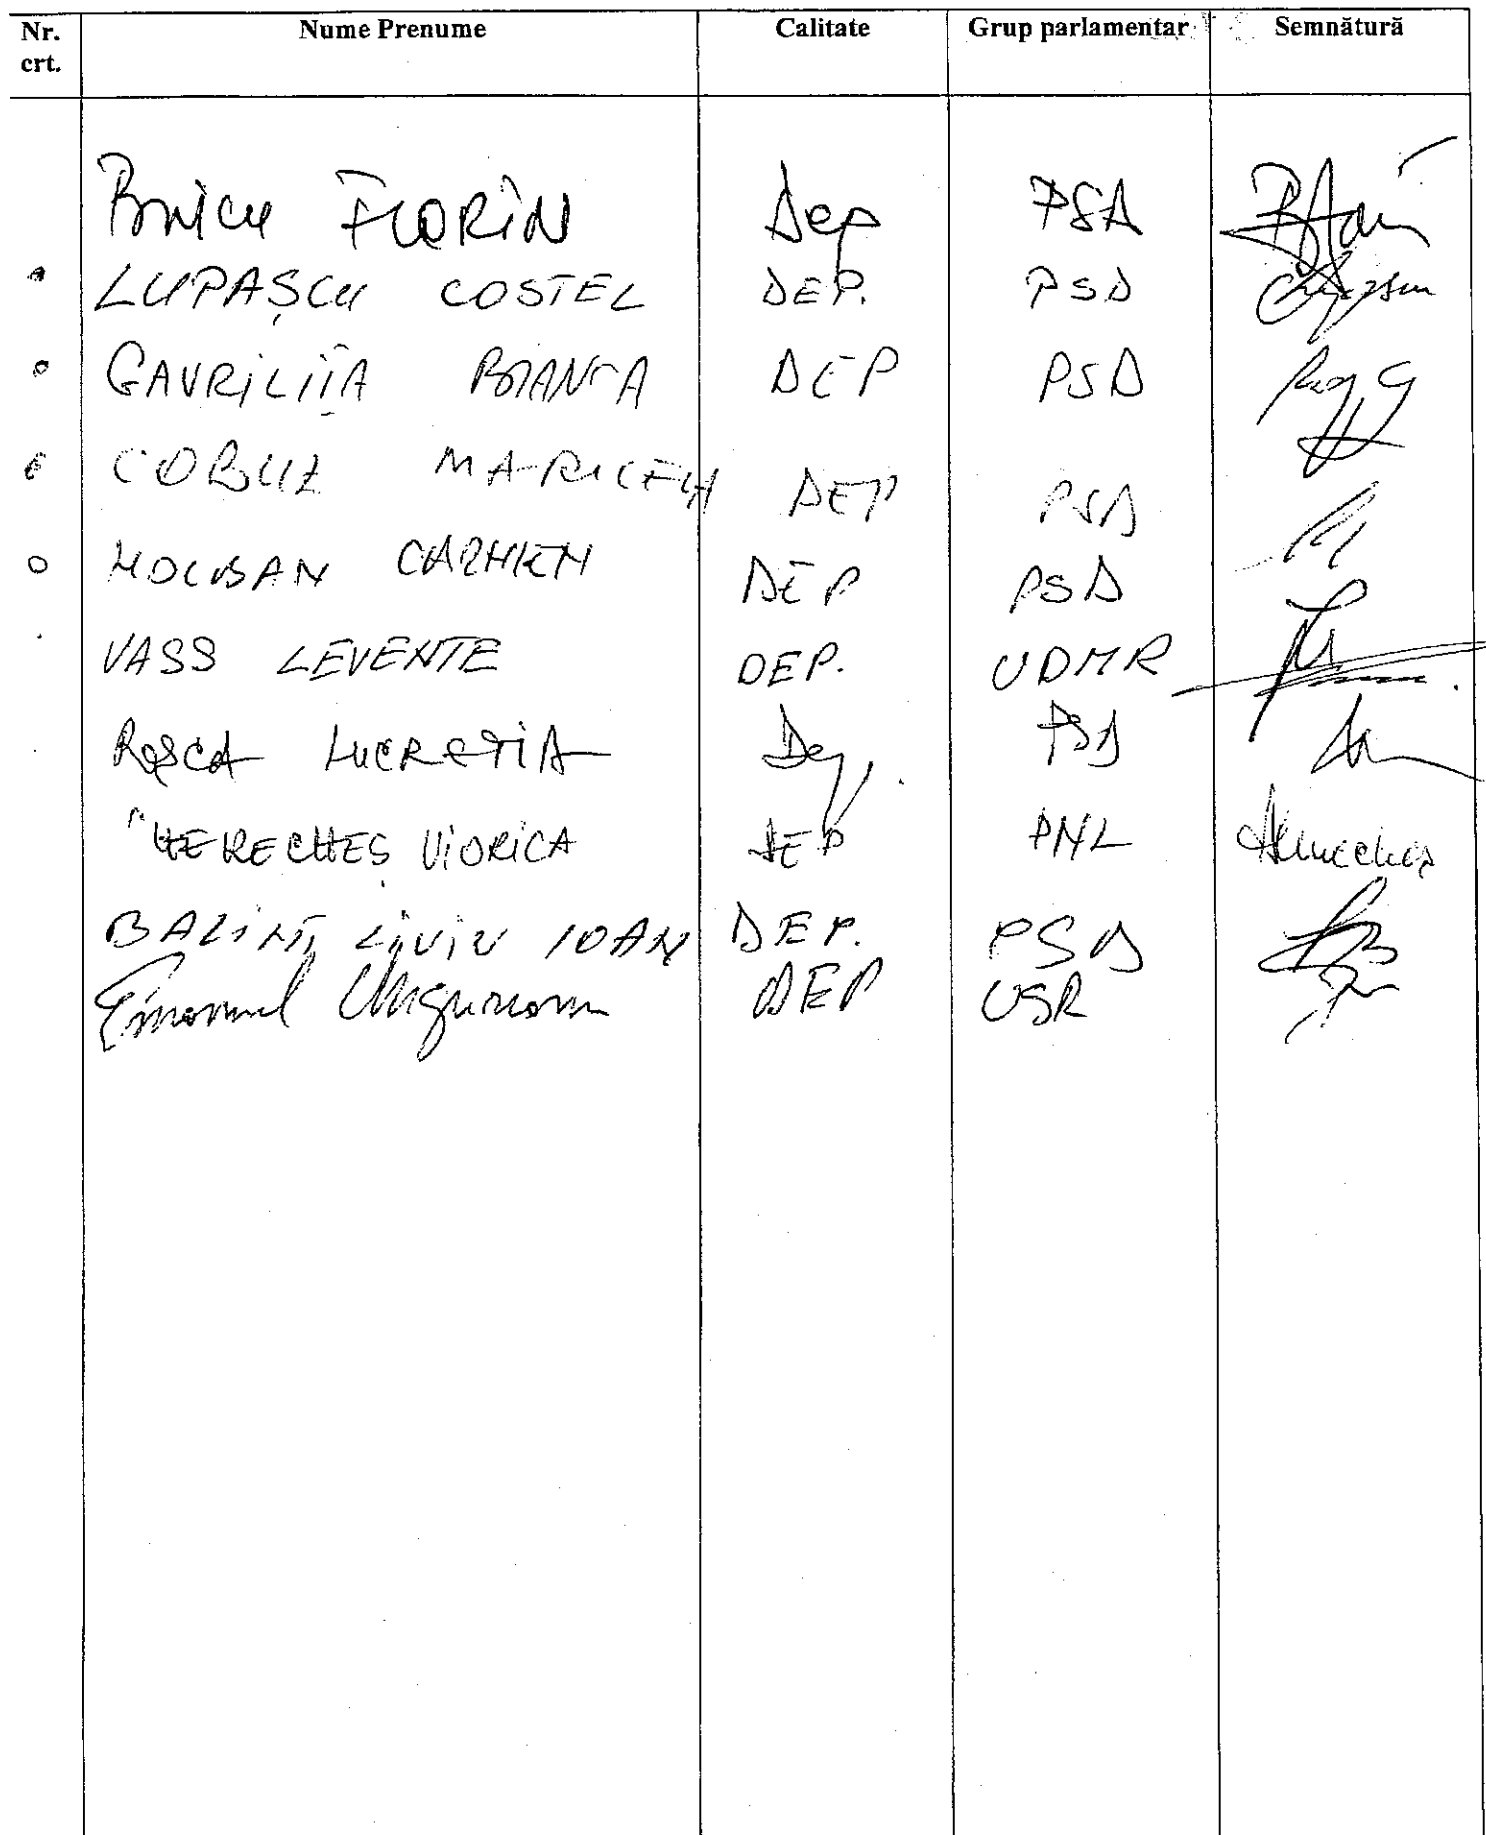 Nr. crt. Nume Prenume Calitate Grup parlamentar Semnătură
Bnicu FLORIN Dep PSD
LUPAȘCU COSTEL DEP. PSD
GAVRILIȚĂ BIANCA DEP PSD
COBUZ MARICELA DEP PSD
MOCUBAN CARMEN DEP PSD
VASS LEVENTE DEP. UDMR
Roșca LUCREȚIA Dep. PSD
HERECHEȘ VIORICA DEP PNL
BALINT LIVIU IOAN DEP. PSD
Emanuel Ungureanu DEP USR